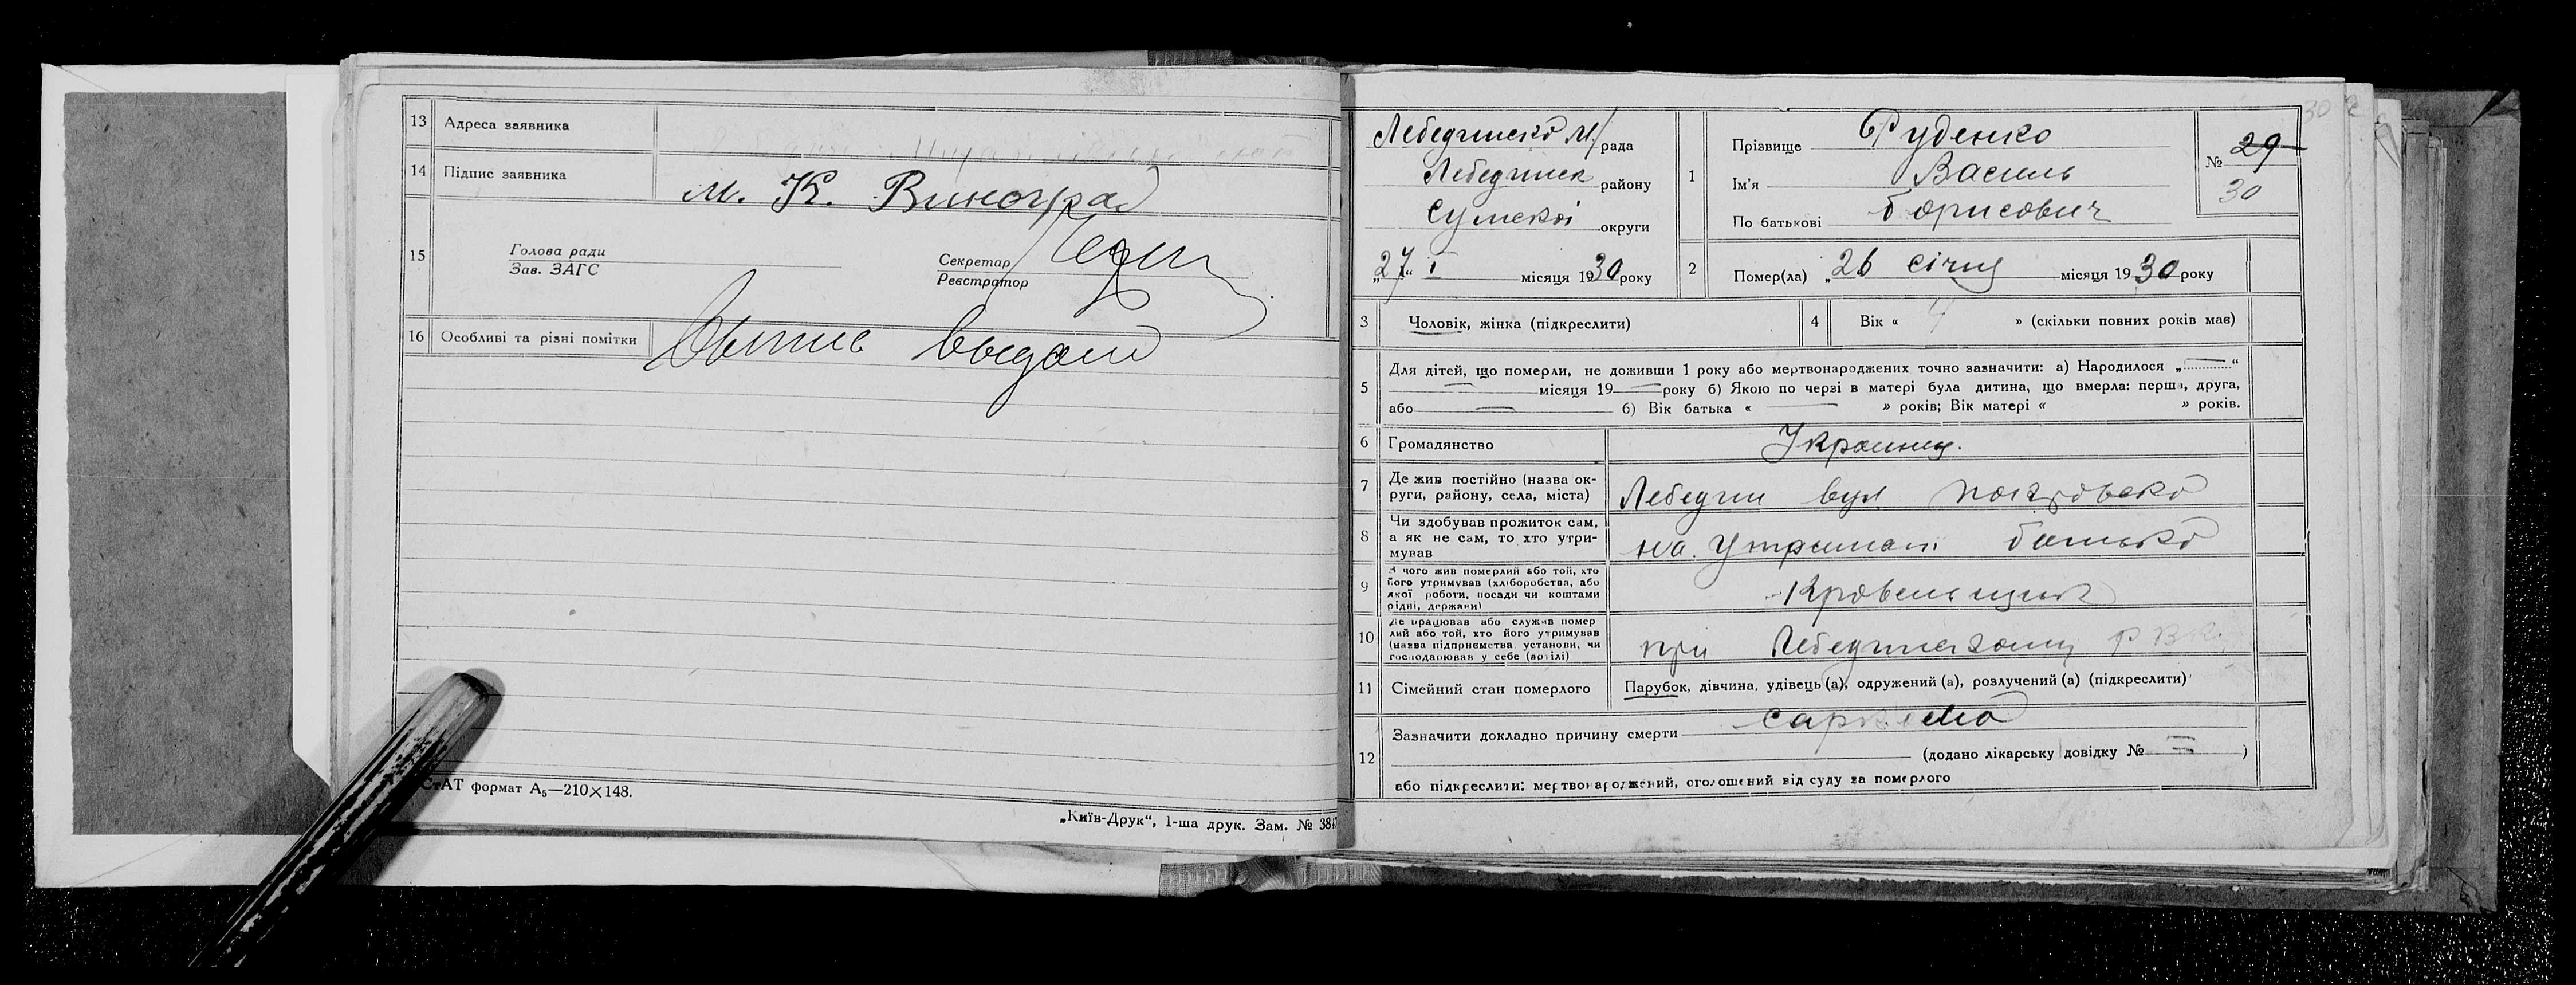 13 Адреса заявника
14 Підпис заявника М. К. Виноград
15 Голова ради
Зав. ЗАГС
Секретар
Реєстратор
16 Особливі та різні помітки
СтАТ формат А5—210×148.
„Київ-Друк“, 1-ша друк. Зам. №
30
Лебединсько М/рада
Лебединск району
Сумскої округи
„27“ I місяця 1930 року
1 Прізвище Руденко
Ім'я Василь
По батькові Борисович
№ 29
30
2 Помер(ла) „26 січня місяця 1930 року
3 Чоловік, жінка (підкреслити)
4 Вік « 4 » (скільки повних років має)
5 Для дітей, що померли, не доживши 1 року або мертвонароджених точно зазначити: а) Народилося „ “
місяця 19 — року б) Якою по черзі в матері була дитина, що вмерла: перша, друга,
або — б) Вік батька « — » років; Вік матері « » років.
6 Громадянство Украинец.
7 Де жив постійно (назва ок-
руги, району, села, міста) Лебедин вул
8 Чи здобував прожиток сам,
а як не сам, то хто утри-
мував на утримані батько
9 З чого жив померлий або той, хто
його утримував (хліборобства, або
якої роботи, посади чи коштами
рідні, держави) Кровельщик
10 Де працював або служив помер
лий або той, хто його утримував
(назва підприємства, установи, чи
господарював у себе (артілі) при
11 Сімейний стан померлого Парубок, дівчина, удівець (а), одружений (а), розлучений (а) (підкреслити)
12 Зазначити докладно причину смерти
(додано лікарську довідку № = )
або підкреслити: мертвонароджений, оголошений від суду за померлого